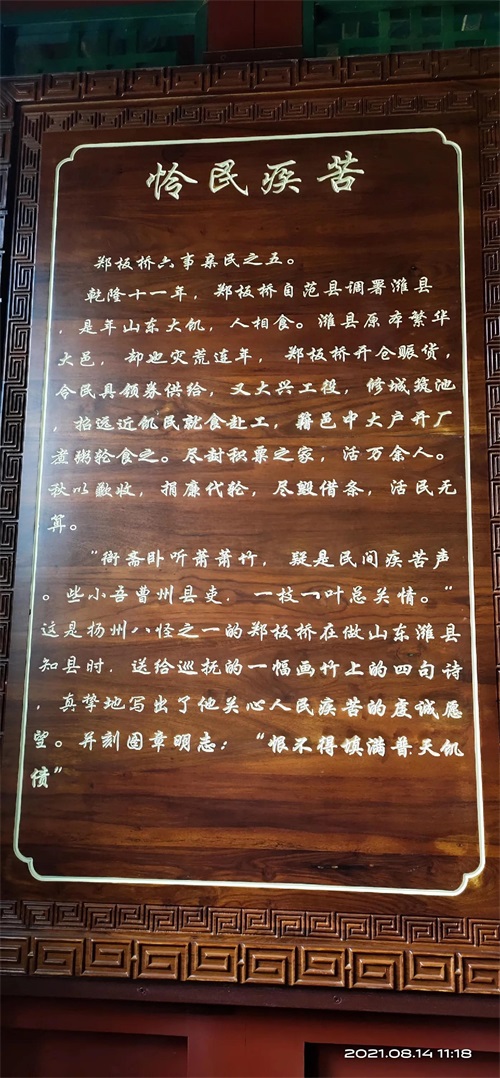 怜民疾苦
郑板桥六事亲民之五。
乾隆十一年，郑板桥自范县调署潍县
，是年山东大饥，人相食。潍县原本繁华
大邑，却也灾荒连年，郑板桥开仓赈货，
令民具领券供给，又大兴工役，修城筑池
，招远近饥民就食赴工，籍邑中大户开厂
煮粥轮食之。尽封积粟之家，活万余人。
秋以歉收，捐廉代轮，尽毁借条，活民无
算。
“衙斋卧听萧萧竹，疑是民间疾苦声
。些小吾曹州县吏．一枝一叶总关情。”
这是扬州八怪之一的郑板桥在做山东潍县
知县时．送给巡抚的一幅画竹上的四句诗
，真挚地写出了他关心人民疾苦的虔诚愿
望。并刻图章明志：“恨不得填满普天饥
债”
2021.08.14 11:18